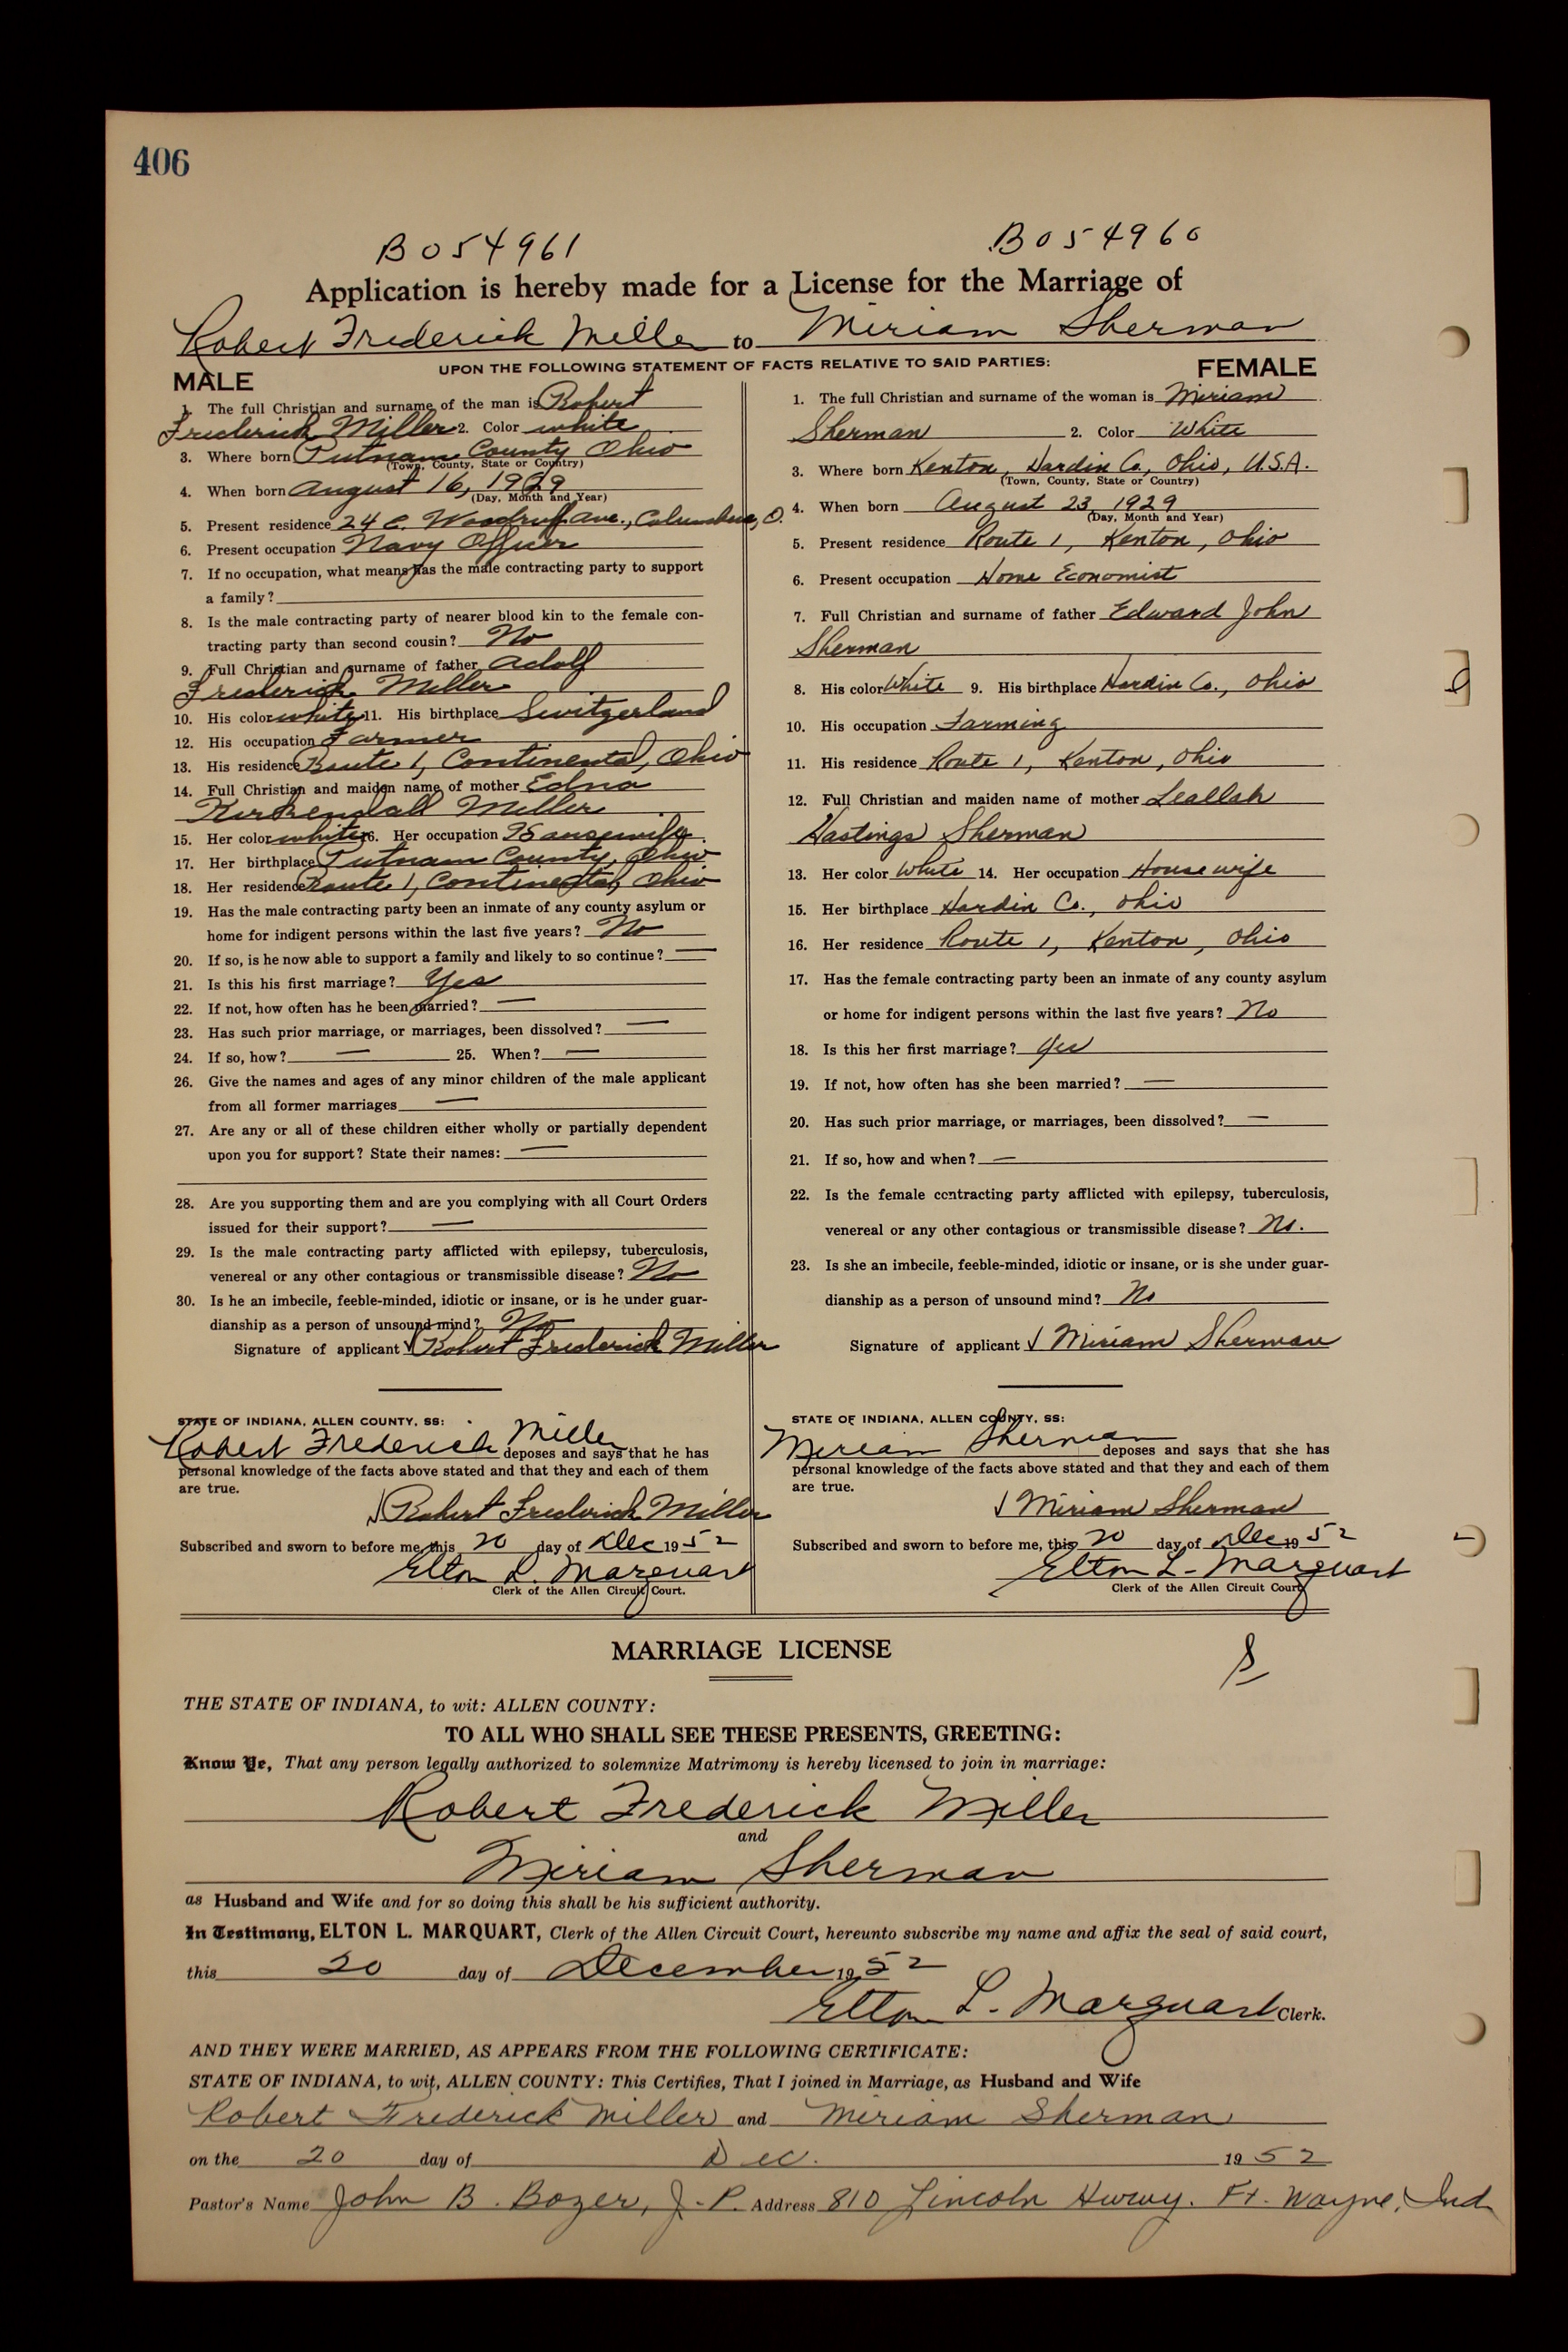 406
B054961
B054960
Application is hereby made for a License for the Marriage of
Robert Frederick Miller to Miriam Sherman
UPON THE FOLLOWING STATEMENT OF FACTS RELATIVE TO SAID PARTIES:
MALE
1. The full Christian and surname of the man is Robert
Frederick Miller 2. Color white
3. Where born Putnam County Ohio
(Town, County, State or Country)
4. When born August 16, 1929
(Day, Month and Year)
5. Present residence 24 E. Woodruff Ave., Columbus, O.
6. Present occupation Navy Officer
7. If no occupation, what means has the male contracting party to support
a family?
8. Is the male contracting party of nearer blood kin to the female con-
tracting party than second cousin? No
9. Full Christian and surname of father Adolf
Frederick Miller
10. His color white 11. His birthplace Switzerland
12. His occupation Farmer
13. His residence Route 1, Continental, Ohio
14. Full Christian and maiden name of mother Edna
Kirkendall Miller
15. Her color white 16. Her occupation Housewife
17. Her birthplace Putnam County, Ohio
18. Her residence Route 1, Continental, Ohio
19. Has the male contracting party been an inmate of any county asylum or
home for indigent persons within the last five years? No
20. If so, is he now able to support a family and likely to so continue? —
21. Is this his first marriage? Yes
22. If not, how often has he been married? —
23. Has such prior marriage, or marriages, been dissolved? —
24. If so, how? — 25. When? —
26. Give the names and ages of any minor children of the male applicant
from all former marriages —
27. Are any or all of these children either wholly or partially dependent
upon you for support? State their names: —
28. Are you supporting them and are you complying with all Court Orders
issued for their support? —
29. Is the male contracting party afflicted with epilepsy, tuberculosis,
venereal or any other contagious or transmissible disease? No
30. Is he an imbecile, feeble-minded, idiotic or insane, or is he under guar-
dianship as a person of unsound mind? No
Signature of applicant √ Robert Frederick Miller
STATE OF INDIANA, ALLEN COUNTY, SS:
Robert Frederick Miller deposes and says that he has
personal knowledge of the facts above stated and that they and each of them
are true.
√ Robert Frederick Miller
Subscribed and sworn to before me, this 20 day of Dec 1952
Elton L. Marquart
Clerk of the Allen Circuit Court.
FEMALE
1. The full Christian and surname of the woman is Miriam
Sherman 2. Color White
3. Where born Kenton, Hardin Co., Ohio, U.S.A.
(Town, County, State or Country)
4. When born August 23 1929
(Day, Month and Year)
5. Present residence Route 1, Kenton, Ohio
6. Present occupation Home Economist
7. Full Christian and surname of father Edward John
Sherman
8. His color White 9. His birthplace Hardin Co., Ohio
10. His occupation Farming
11. His residence Route 1, Kenton, Ohio
12. Full Christian and maiden name of mother Leallah
Hastings Sherman
13. Her color White 14. Her occupation Housewife
15. Her birthplace Hardin Co., Ohio
16. Her residence Route 1, Kenton, Ohio
17. Has the female contracting party been an inmate of any county asylum
or home for indigent persons within the last five years? No
18. Is this her first marriage? Yes
19. If not, how often has she been married? —
20. Has such prior marriage, or marriages, been dissolved? —
21. If so, how and when? —
22. Is the female contracting party afflicted with epilepsy, tuberculosis,
venereal or any other contagious or transmissible disease? No.
23. Is she an imbecile, feeble-minded, idiotic or insane, or is she under guar-
dianship as a person of unsound mind? No
Signature of applicant √ Miriam Sherman
STATE OF INDIANA, ALLEN COUNTY, SS:
Miriam Sherman deposes and says that she has
personal knowledge of the facts above stated and that they and each of them
are true.
√ Miriam Sherman
Subscribed and sworn to before me, this 20 day of Dec 1952
Elton L. Marquart
Clerk of the Allen Circuit Court
MARRIAGE LICENSE
THE STATE OF INDIANA, to wit: ALLEN COUNTY:
TO ALL WHO SHALL SEE THESE PRESENTS, GREETING:
Know Ye, That any person legally authorized to solemnize Matrimony is hereby licensed to join in marriage:
Robert Frederick Miller
and
Miriam Sherman
as Husband and Wife and for so doing this shall be his sufficient authority.
In Testimony, ELTON L. MARQUART, Clerk of the Allen Circuit Court, hereunto subscribe my name and affix the seal of said court,
this 20 day of December 1952
Elton L. Marquart Clerk.
AND THEY WERE MARRIED, AS APPEARS FROM THE FOLLOWING CERTIFICATE:
STATE OF INDIANA, to wit, ALLEN COUNTY: This Certifies, That I joined in Marriage, as Husband and Wife
Robert Frederick Miller and Miriam Sherman
on the 20 day of Dec. 1952
Pastor's Name John B. Bozer, J.P. Address 810 Lincoln Hwwy. Ft. Wayne, Ind